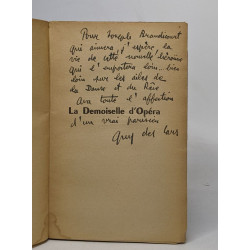 Pour Josephe
qui aimera j'espère la
vie de cette nouvelle héroïne
qui l'emportera loin... bien
loin sur les ailes de
la Danse et du Rêve
Avec toute l'affection
La Demoiselle d'Opéra
d'un vrai parisien
Guy des Cars